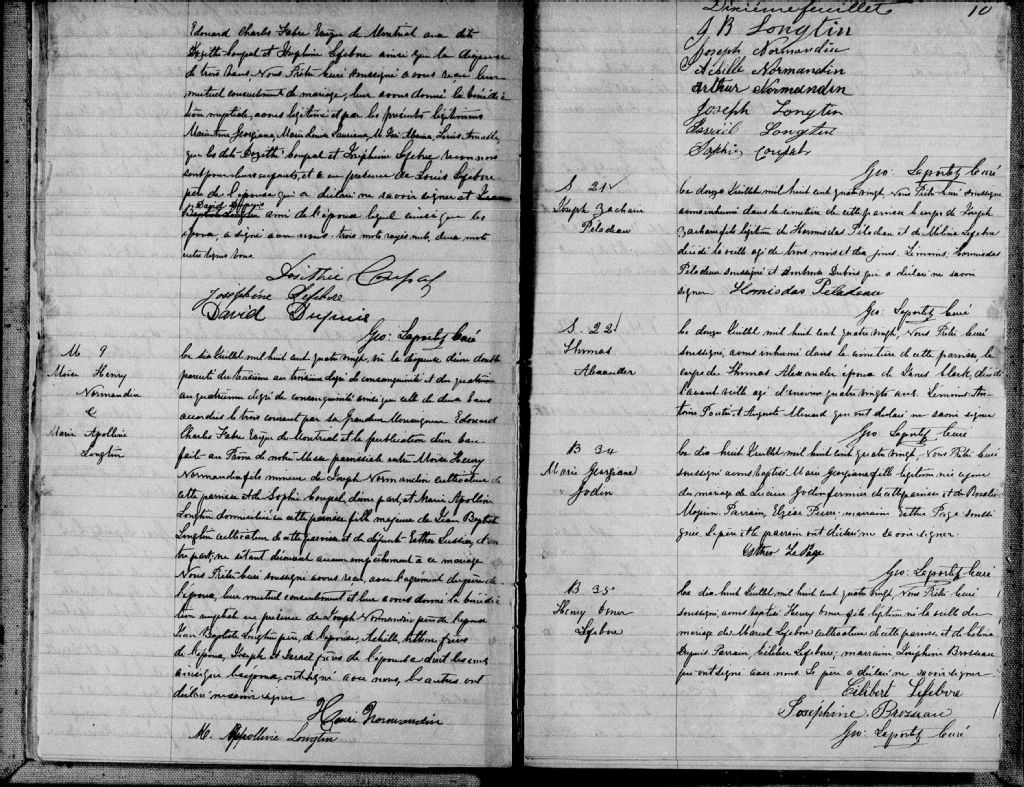 Edouard Charles Fabre Evêque de Montréal aux dits
Dozithé Coupal et Josephine Lefebvre ainsi que la dispense
de trois bans, Nous Prêtre Curé soussigné avons reçu leur
mutuel consentement de mariage, leur avons donné la bénédic
tion nuptiale, avons légitimé et par les présentes légitimons
Marie Georgiana, Marie Louisa Laurenza, M
que les dits Dozithé Coupal et Joséphine Lefebvre reconnais
sent pour leurs enfants, et ce en présence de Louis Lefebvre
père de l'épouse qui a déclaré ne savoir signer et
David Dupuis
Baptiste Longtin ami de l'époux lequel ainsi que les
époux, a signé avec nous. trois mots rayés nuls, deux mots
entre lignes bons.
Dosithée Coupal
Joséphine Lefebvre
David Dupuis
Geo: Laporte Curé
M 9
Moïse Henry
Normandin
&
Marie Apolline
Longtin
Le dix Juillet, mil huit cent quatre vingt, vu la dispense d'un double
parenté du troisième au troisième degré de consanguinité et du quatrième
au quatrième degré de consanguinité ainsi que celle de deux bans
accordées le tout par sa Grandeur Monseigneur Edouard
Charles Fabre Evêque de Montréal et la publication d'un ban
fait au Prône de notre Messe paroissiale entre Moïse Henry
Normandin fils mineur de Joseph Normandin cultivateur de
cette paroisse et de Sophie Coupal, d'une part, et Marie Apolline
Longtin domiciliée en cette paroisse fille majeure de Jean Baptiste
Longtin cultivateur de cette paroisse et de défunte Esther Lussier, d'au
tre part; ne s'étant découvert aucun empêchement à ce mariage
Nous Prêtre Curé soussigné avons reçu, avec l'agrément du père de
l'époux, leur mutuel consentement et leur avons donné la bénédic
tion nuptiale en présence de Joseph Normandin père de l'époux
Jean Baptiste Longtin père de l'épouse, Achille, Arthur frères
de l'époux, Joseph et Israël frères de l'épouse dont les uns
ainsi que l'époux, ont signé avec nous, les autres ont
déclaré ne savoir signer
Henri Normandin
M. Appolline Longtin
Dixième feuillet
10
J B Longtin
Joseph Normandin
Achille Normandin
Arthur Normandin
Joseph Longtin
Israël Longtin
Sophie Coupal
Geo: Laporte Curé
S. 21
Joseph Zacharie
Péladeau
Le douze Juillet mil huit cent quatre vingt, Nous Prêtre Curé soussigné
avons inhumé dans le cimetière de cette paroisse le corps de Joseph
Zacharie fils légitime de Hormisdas Péladeau et de Mélina Lefebvre
décédé la veille agé de trois mois et dix jours. Témoins: Hormisdas
Péladeau soussigné et Ambroise Dubois qui a déclaré ne savoir
signer. Homisdas Péladeau
Geo: Laporte Curé
S. 22
Thomas
Alexander
Le douze Juillet, mil huit cent quatre vingt, Nous Prêtre Curé
soussigné, avons inhumé dans le cimetière de cette paroisse, le
corps de Thomas Alexander époux de Clark, décédé
l'avant veille agé d'environ quatre vingts ans. Témoins: An
toine et Auguste Ménard qui ont déclaré ne savoir signer
Geo: Laporte Curé
B 34
Marie Georgiana
Godin
Le dix huit Juillet, mil huit cent quatre vingt, Nous Prêtre Curé
soussigné avons baptisé Marie Georgiana fille légitime née
du mariage de Godin fermier de cette paroisse et de Rosalie
Parrain, Elzéar Pierre: marraine Esther Page soussi
gnée. Le père et le parrain ont déclaré ne savoir signer
Esther Le Page
Geo: Laporte Curé
B 35
Henry Omer
Lefebvre
Le dix huit Juillet, mil huit cent quatre vingt, Nous Prêtre Curé
soussigné, avons baptisé Henry Omer fils légitime né la veille du
mariage de Marcel Lefebvre cultivateur de cette paroisse et de Célina
Dupuis. Parrain, Célibert Lefebvre; marraine, Joséphine Brosseau
qui ont signé avec nous. Le père a déclaré ne savoir signer.
Célibert Lefebvre
Josephine Brosseau
Geo: Laporte Curé